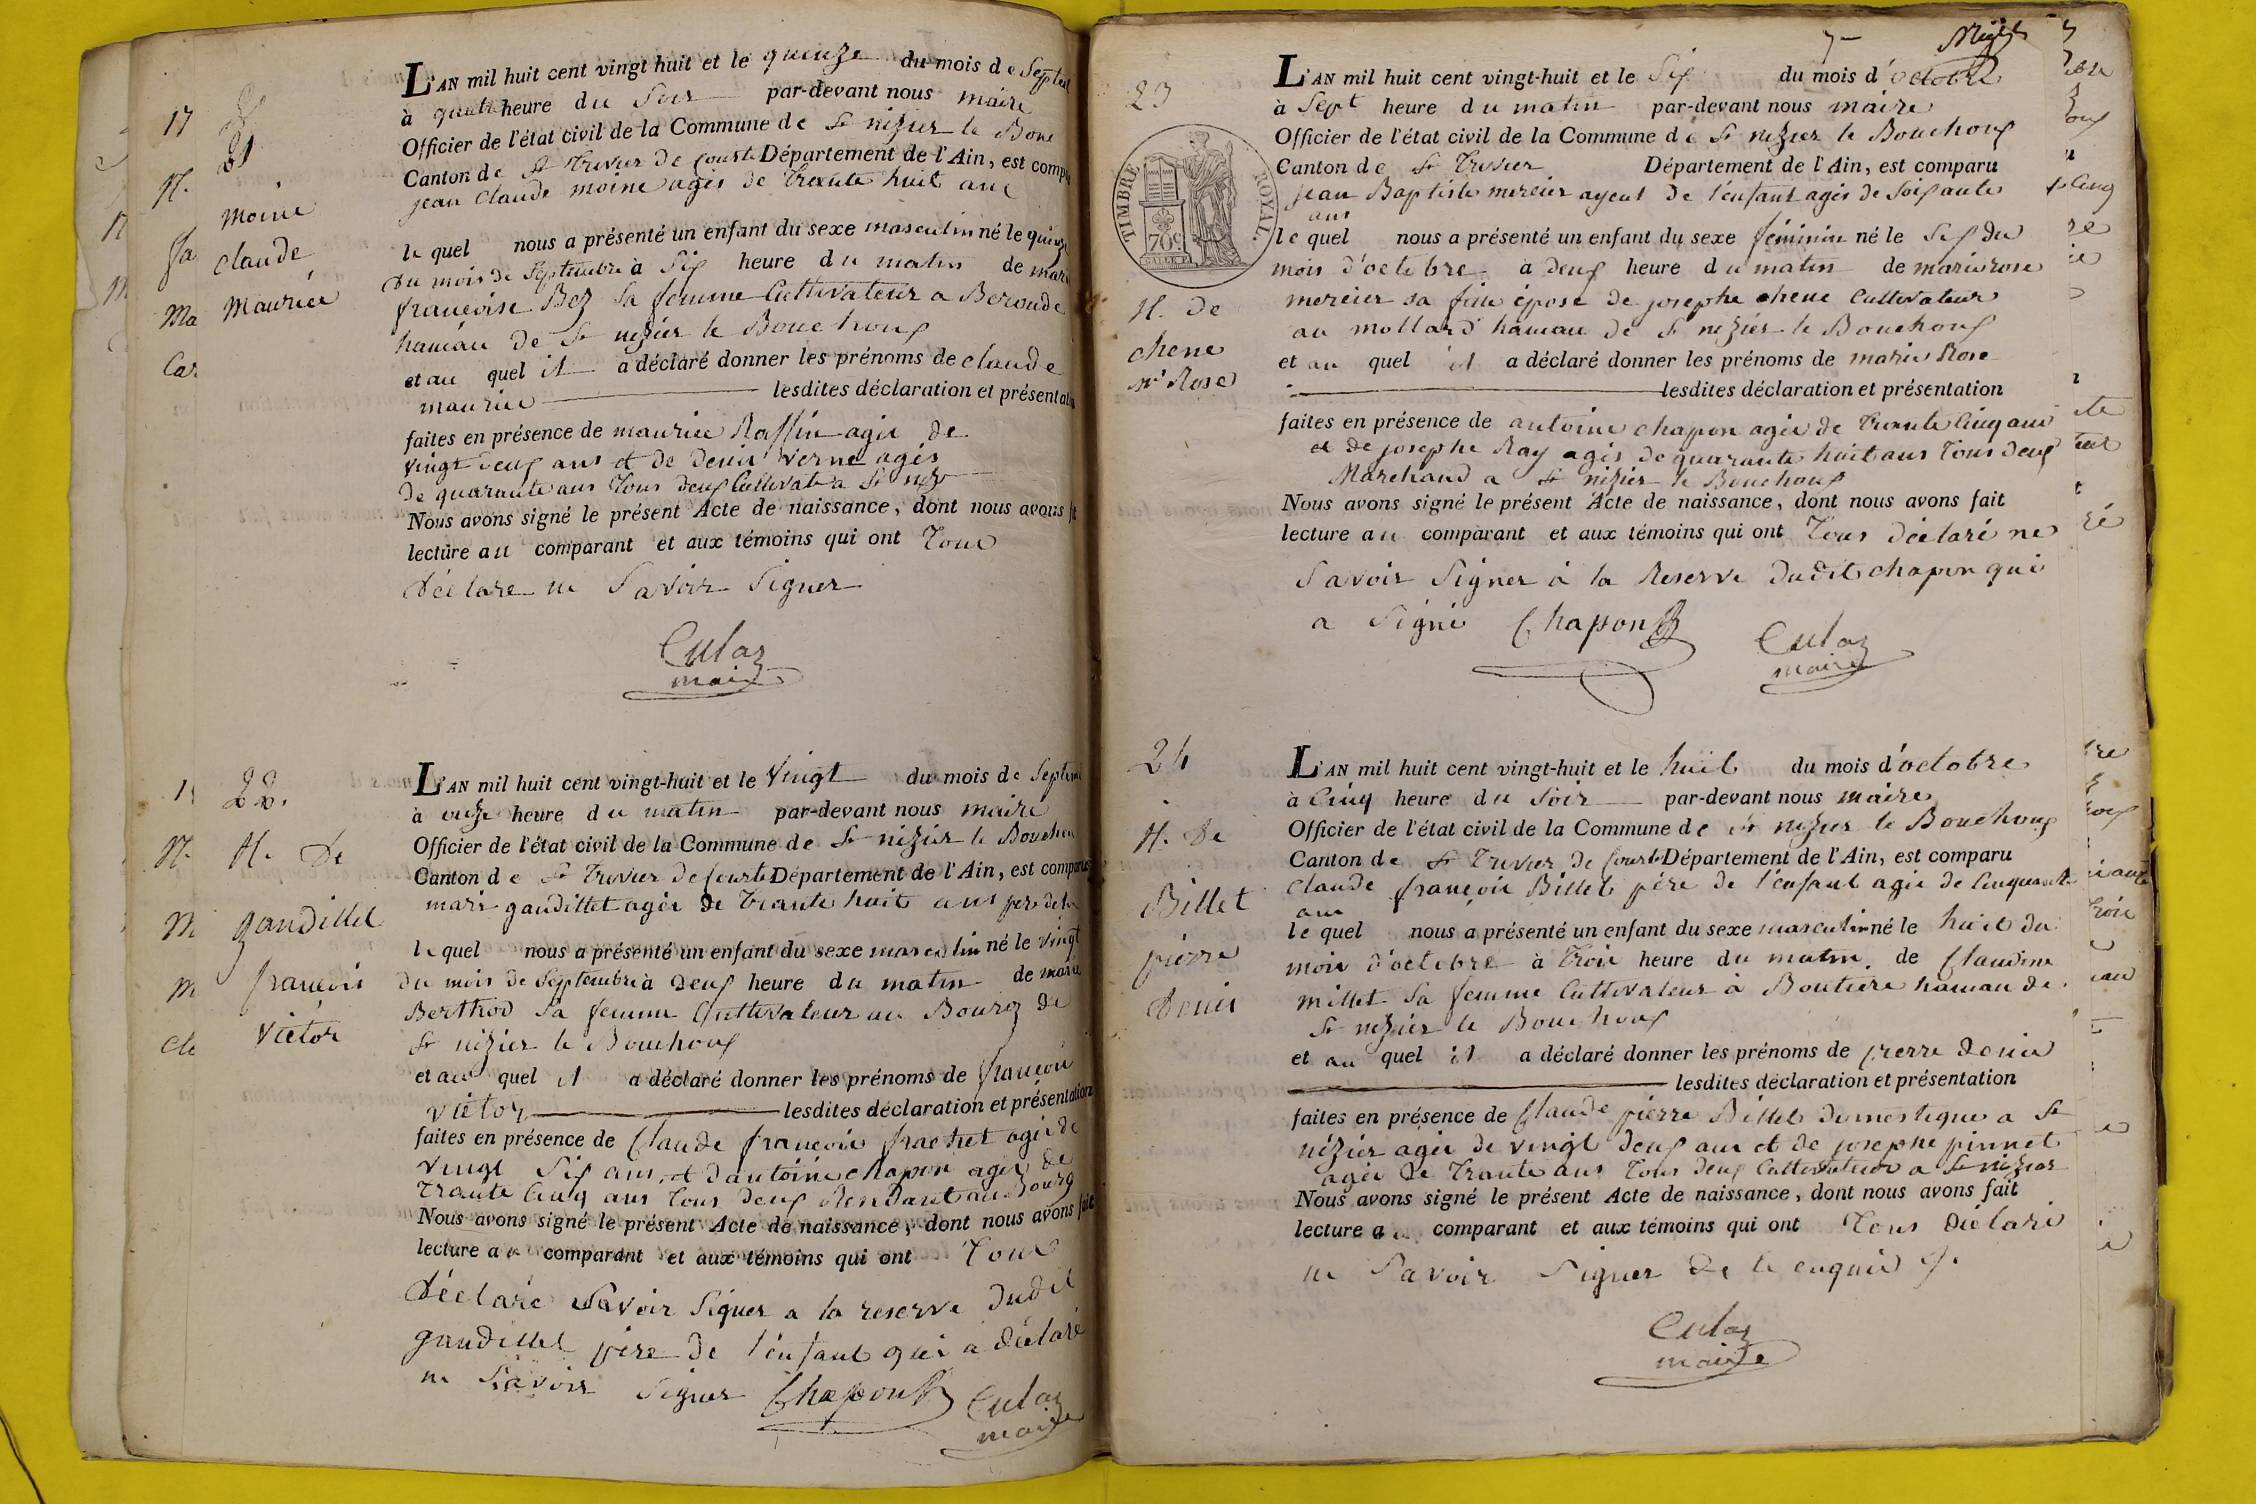 21
Moine
claude
Maurice
L'AN mil huit cent vingt huit et le quinze du mois de Septem
à quatre heure du Soir par-devant nous maire
Officier de l'état civil de la Commune de St nizier le Bouc
Canton de St Trivier de Courte Département de l'Ain, est compa
jean Claude moine agés de Trante huit ans
le quel nous a présenté un enfant du sexe masculin né le quinze
du mois de Septembre à Six heure du matin de mari
françoise Bez Sa femme Cultivateur a Beroude
hameau de St nizier le Bouchoux
et au quel il a déclaré donner les prénoms de claude
maurice lesdites déclaration et présentatio
faites en présence de maurice Raffin agés de
vingt deux ans et de Denis Verne agés
de quarante ans Tous deux Cultivat a St nizr
Nous avons signé le présent Acte de naissance, dont nous avons f
lecture au comparant et aux témoins qui ont Tous
déclare ne Savoir Signer
Culaz
maire
22.
N. de
gaudillet
francois
Victor
L'AN mil huit cent vingt-huit et le Vingt du mois de Septem
à onze heure du matin par-devant nous maire
Officier de l'état civil de la Commune de St nizier le Bouchou
Canton de St Trivier de Courte Département de l'Ain, est comparu
mari gaudillet agés de Trante huit ans pere de
le quel nous a présenté un enfant du sexe masculin né le vingt
du mois de Septembre à deux heure du matin de marie
Berthod Sa femme Cultivateur au Bourg de
St nizier le Bouchoux
et au quel il a déclaré donner les prénoms de francois
victor lesdites déclaration et présentation
faites en présence de Claude francois frachet agés de
vingt Six ans et d'antoine chapon agés de
Trante Cinq ans Tous deux Rendant au Bourg
Nous avons signé le présent Acte de naissance, dont nous avons fait
lecture au comparant et aux témoins qui ont Tous
déclaré Savoir Signer a la reserve dudit
gaudillet père de l'enfant qui a déclaré
ne Savoir Signer Chapon Culaz
maire
7
23
TIMBRE ROYAL.
70c
N. de
chene
Mie Rose
L'AN mil huit cent vingt-huit et le Six du mois d'octobre
à Sept heure du matin par-devant nous maire
Officier de l'état civil de la Commune de St nizier le Bouchoux
Canton de St Trivier Département de l'Ain, est comparu
jean Baptiste mercier ayeul de l'enfant agés de Soixante
ans
le quel nous a présenté un enfant du sexe féminin né le Six du
mois d'octobre à deux heure du matin de marie rose
mercier sa fille épose de josephe chene Cultivateur
au mollard hameau de St nizier le Bouchoux
et au quel il a déclaré donner les prénoms de marie Rose
lesdites déclaration et présentation
faites en présence de antoine chapon agés de Trante Cinq ans
et de josephe Ray agés de quarante huit ans Tous deux
Marchand a St nizier le Bouchoux
Nous avons signé le présent Acte de naissance, dont nous avons fait
lecture au comparant et aux témoins qui ont Tous déclaré ne
Savoir Signer à la Reserve dudit chapon qui
a Signé Chapon Culaz
maire
24
N. de
Billet
pierre
Denis
L'AN mil huit cent vingt-huit et le huit du mois d'octobre
à Cinq heure du Soir par-devant nous maire
Officier de l'état civil de la Commune de St nizier le Bouchoux
Canton de St Trivier de Courte Département de l'Ain, est comparu
Claude françois Billet père de l'enfant agés de Cinquante
ans
le quel nous a présenté un enfant du sexe masculin né le huit du
mois d'octobre à Trois heure du matin de Claudine
millet Sa femme Cultivateur à Boutiere hameau de
St nizier le Bouchoux
et au quel il a déclaré donner les prénoms de pierre denis
lesdites déclaration et présentation
faites en présence de Claude pierre Billet domestique a St
nizier agés de vingt deux ans et de josephe pinnet
agés de Trante ans Tous deux Cultivateur a St nizier
Nous avons signé le présent Acte de naissance, dont nous avons fait
lecture au comparant et aux témoins qui ont Tous déclaré
ne Savoir Signer de le enquis
Culaz
maire